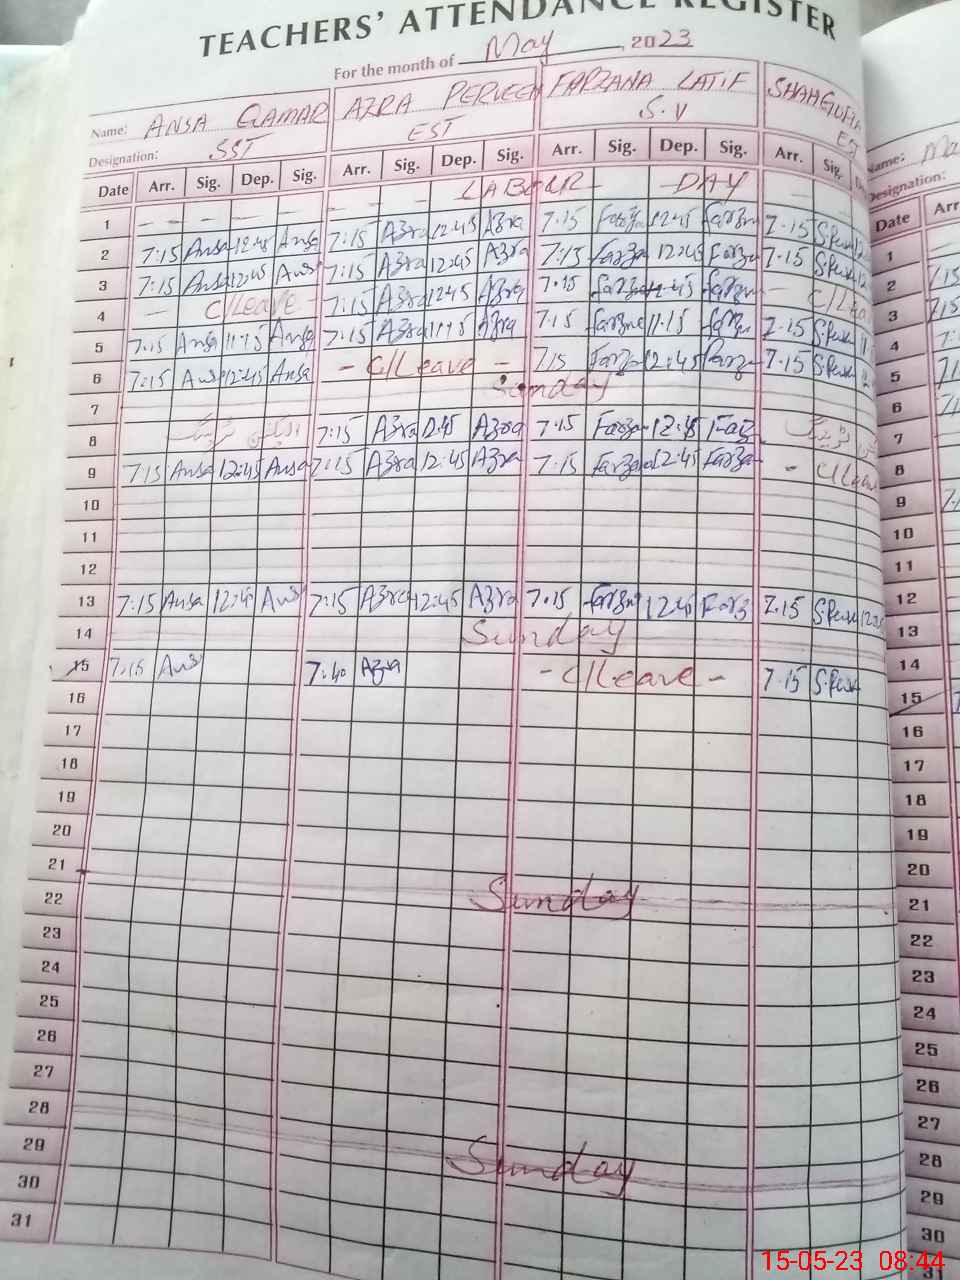 TEACHERS' ATTENDANCE REGISTER
For the month of May, 2023
Name: ANSA QAMAR AZRA PERVEEN FARZANA LATIF SHAHGUFTA
Designation: SST EST S.V EST
Date Arr. Sig. Dep. Sig. Arr. Sig. Dep. Sig. Arr. Sig. Dep. Sig. Arr. Sig.
1 LABOUR DAY
2 7:15 Ansa 12:45 Ansa 7:15 Azra 12:45 Azra 7:15 Farza 12:45 Farzn 7:15
3 7:15 Ansa 12:45 Ans 7:15 Azra 12:45 Azra 7:15 Farza 12:45 Farza 7:15
4 C/Leave 7:15 Azra 12:45 Azra 7:15 Farza 12:45 Farzn C/Lea
5 7:15 Ansa 11:15 Ansa 7:15 Azra 11:15 Azra 7:15 Farzne 11:15 Farzn 7:15
6 7:15 Ans 12:45 Ansa - C/Leave - 7:15 Farza 12:45 Farza 7:15
7 Sunday
8 7:15 Azra 12:45 Azra 7:15 Farza 12:45 Faz
9 7:15 Ansa 12:45 Ansa 7:15 Azra 12:45 Azra 7:15 Farzana 12:45 Farza - C/Leave
10
11
12
13 7:15 Ansa 12:45 Ans 7:15 Azra 12:45 Azra 7:15 Farzn 12:45 Farz 7:15
14 Sunday
15 7:15 Ans 7:40 Azra - C/Leave - 7:15
16
17
18
19
20
21
22 Sunday
23
24
25
26
27
28
29 Sunday
30
31
Name: Ma
Designation:
Date Arr
1
2
3
4
5
6
7
8
9
10
11
12
13
14
15
16
17
18
19
20
21
22
23
24
25
26
27
28
29
30
31
15-05-23 08:44